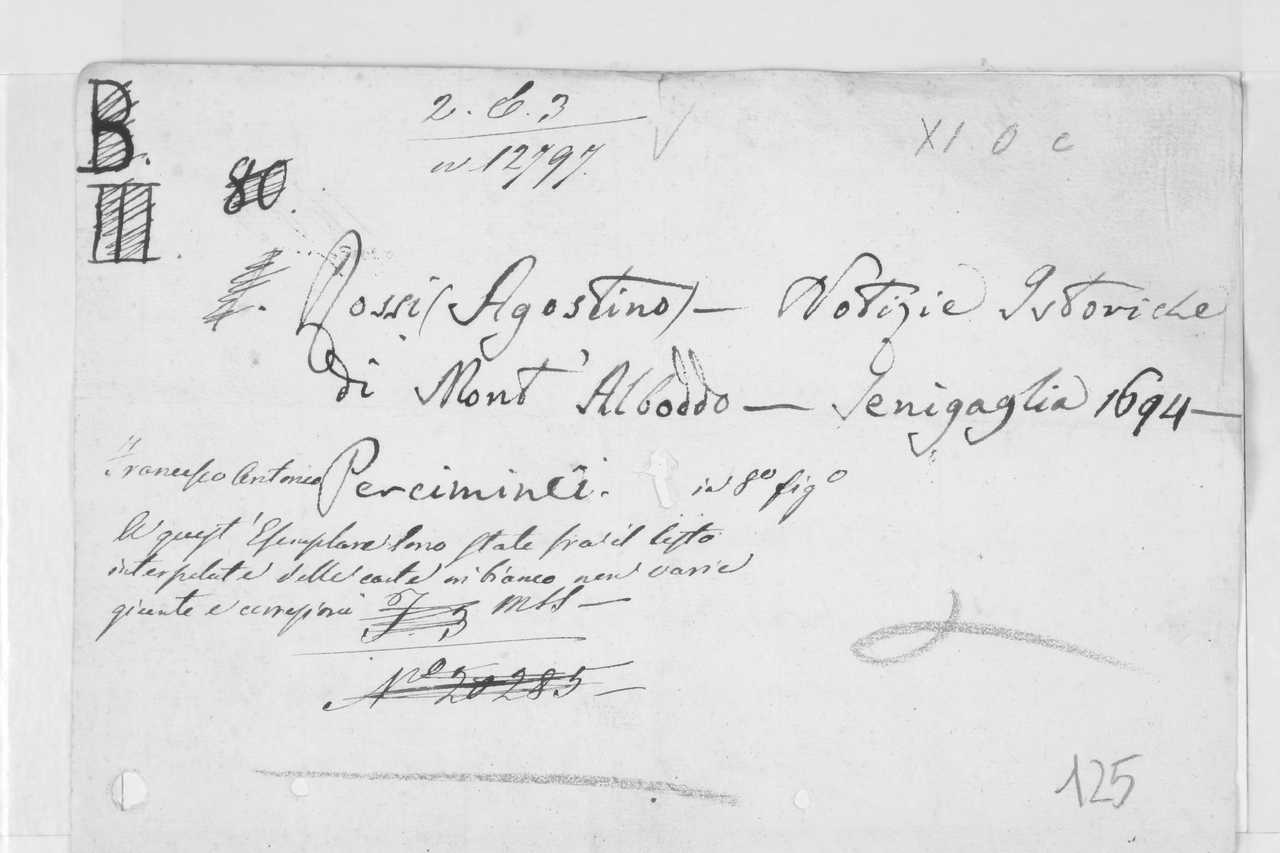 B.
III.
80.
2. E. 3
n. 12797.
XI. 0 c
Rossi (Agostino) — Notizie Istoriche
di Mont' Alboddo — Senigaglia 1694 —
Francesco Antonio Perciminei. in 8º figº
quest' Esemplare sono state fra il testo
interpolate delle carte in bianco
giunte e correzioni mss —
Nº 20285 —
125